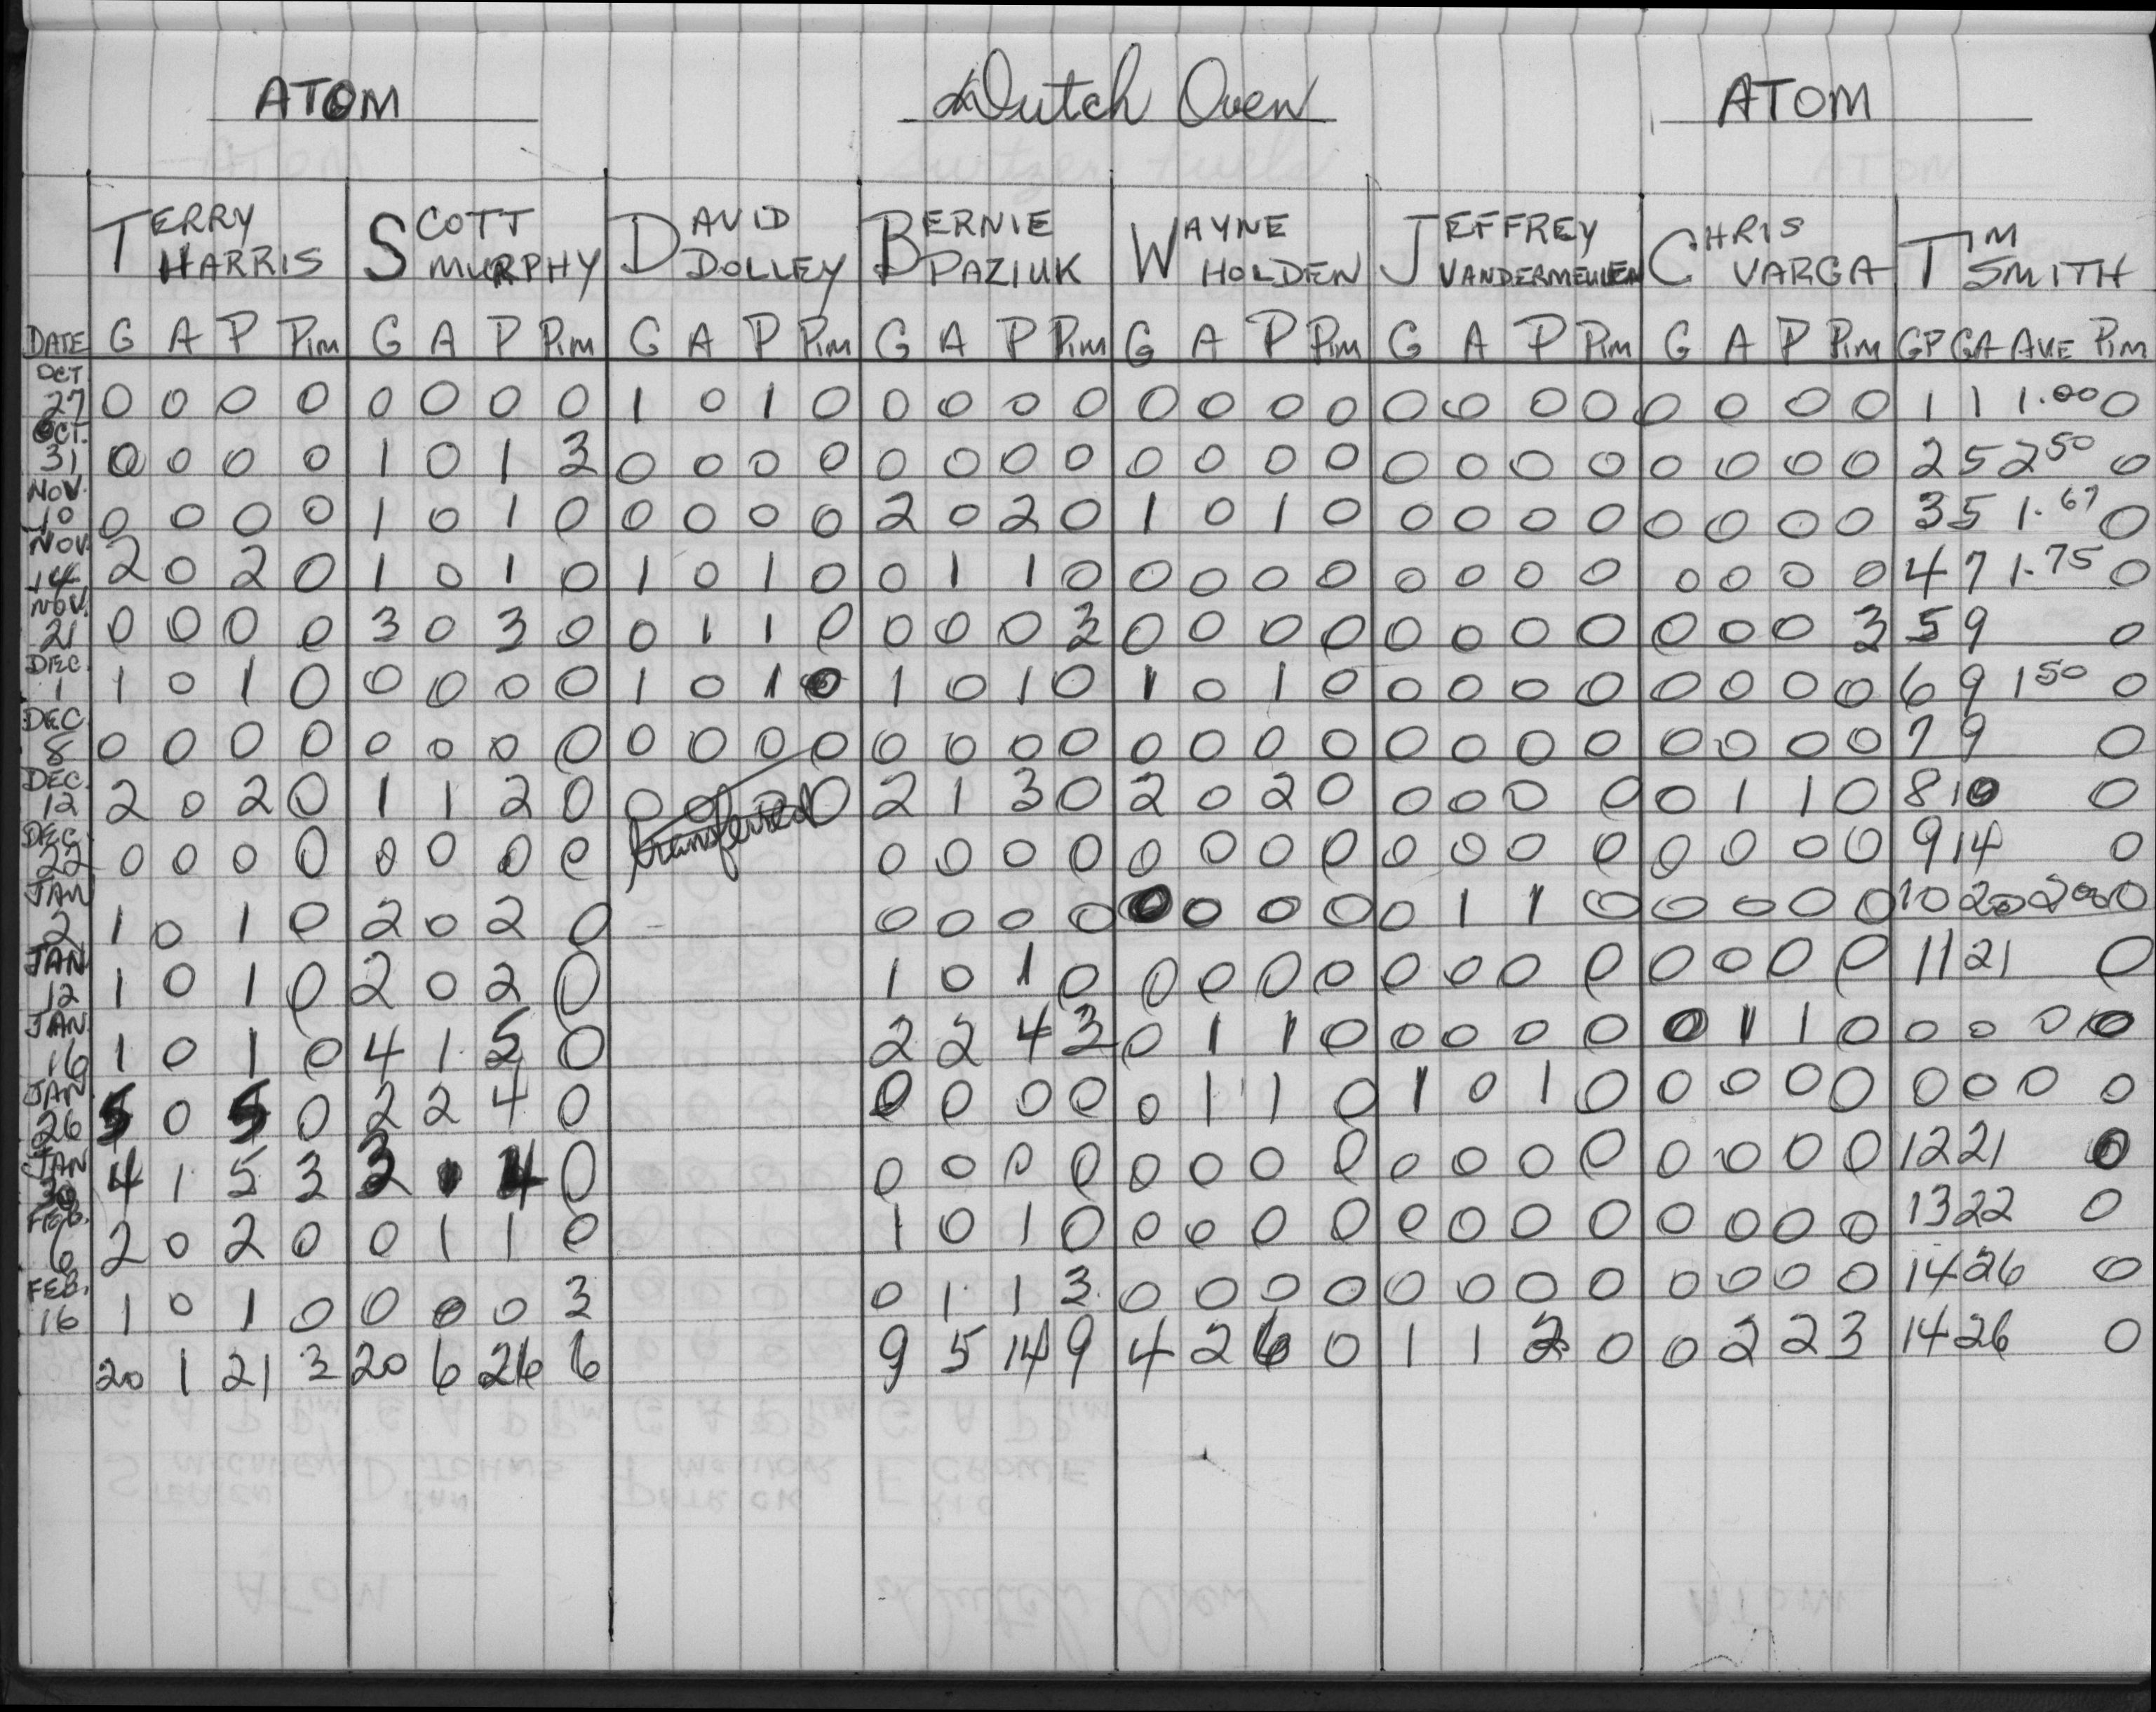 ATOM Dutch Oven ATOM
TERRY SCOTT DAVID BERNIE WAYNE JEFFREY CHRIS TIM
HARRIS MURPHY DOLLEY PAZIUK HOLDEN VANDERMEULEN VARGA SMITH
DATE G A P Pim G A P Pim G A P Pim G A P Pim G A P Pim G A P Pim G A P Pim GP GA AVE Pim
OCT. 27 0 0 0 0 0 0 0 0 1 0 1 0 0 0 0 0 0 0 0 0 0 0 0 0 0 0 0 0 1 1 1.00 0
OCT. 31 0 0 0 0 1 0 1 3 0 0 0 0 0 0 0 0 0 0 0 0 0 0 0 0 0 0 0 0 2 5 2 50 0
NOV. 10 0 0 0 0 1 0 1 0 0 0 0 0 2 0 2 0 1 0 1 0 0 0 0 0 0 0 0 0 3 5 1.67 0
NOV. 14 2 0 2 0 1 0 1 0 1 0 1 0 0 1 1 0 0 0 0 0 0 0 0 0 0 0 0 0 4 7 1.75 0
NOV. 21 0 0 0 0 3 0 3 0 0 1 1 0 0 0 0 3 0 0 0 0 0 0 0 0 0 0 0 3 5 9 0
DEC. 1 1 0 1 0 0 0 0 0 1 0 1 0 1 0 1 0 1 0 1 0 0 0 0 0 0 0 0 0 6 9 1 50 0
DEC. 8 0 0 0 0 0 0 0 0 0 0 0 0 0 0 0 0 0 0 0 0 0 0 0 0 0 0 0 0 7 9 0
DEC. 12 2 0 2 0 1 1 2 0 0 0 0 0 2 1 3 0 2 0 2 0 0 0 0 0 0 1 1 0 8 10 0
DEC. 22 0 0 0 0 0 0 0 0 transferred 0 0 0 0 0 0 0 0 0 0 0 0 0 0 0 0 9 14 0
JAN 2 1 0 1 0 2 0 2 0 0 0 0 0 0 0 0 0 0 1 1 0 0 0 0 0 10 20 2 00 0
JAN 12 1 0 1 0 2 0 2 0 1 0 1 0 0 0 0 0 0 0 0 0 0 0 0 0 11 21 0
JAN. 16 1 0 1 0 4 1 5 0 2 2 4 3 0 1 1 0 0 0 0 0 0 1 1 0 0 0 0 0
JAN 26 5 0 5 0 2 2 4 0 0 0 0 0 0 1 1 0 1 0 1 0 0 0 0 0 0 0 0 0
JAN 30 4 1 5 3 3 1 4 0 0 0 0 0 0 0 0 0 0 0 0 0 0 0 0 0 12 21 0
FEB. 6 2 0 2 0 0 1 1 0 1 0 1 0 0 0 0 0 0 0 0 0 0 0 0 0 13 22 0
FEB. 16 1 0 1 0 0 0 0 3 0 1 1 3 0 0 0 0 0 0 0 0 0 0 0 0 14 26 0
20 1 21 3 20 6 26 6 9 5 14 9 4 2 6 0 1 1 2 0 0 2 2 3 14 26 0